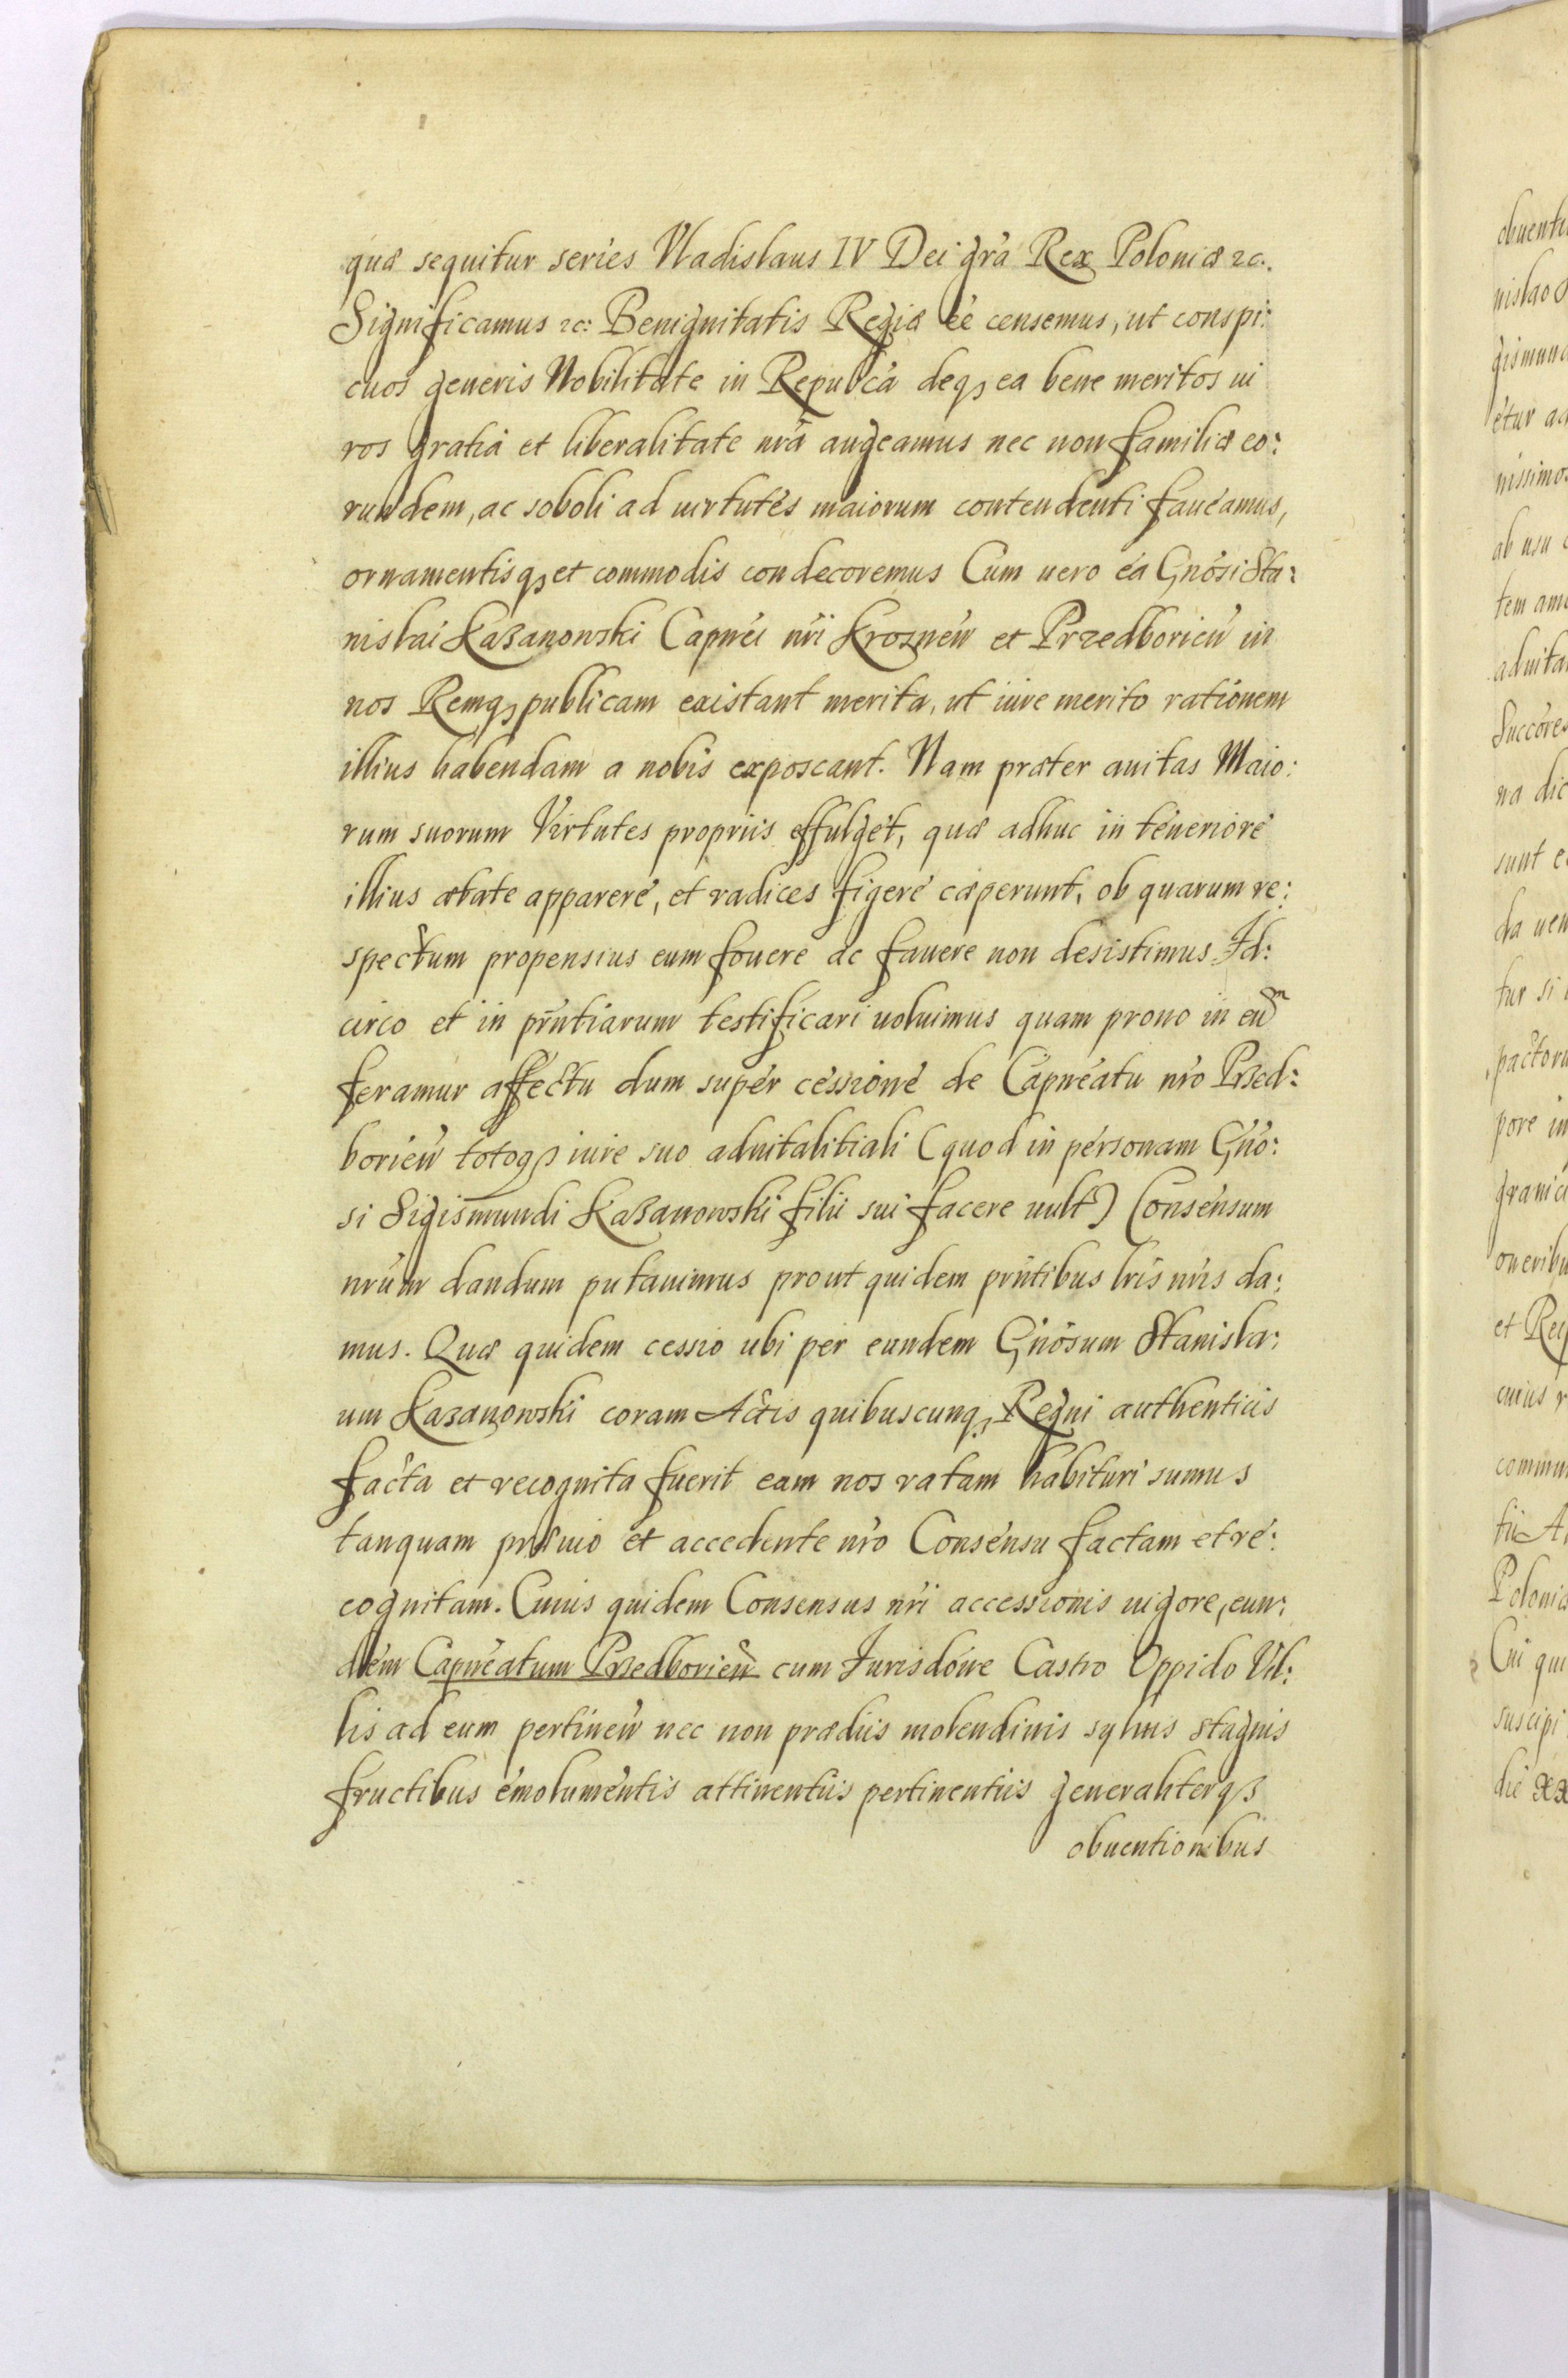 quæ sequitur series Vladislaus IV Dei gra Rex Poloniæ etc.
Significamus etc: Benignitatis Regiæ eé censemus, ut conspi:
cuos generis Nobilitate in Republca deq₃ ea bene meritos ui
ros gratia et liberalitate nrã augeamus nec non familiæ eo:
rundem, ac soboli ad uirtutes maiorum contendenti faueamus,
ornamentisq₃ et commodis condecoremus Cum uero ea Gnosi Sta:
nislai Kazanowski Capnei nri Krosnen et Przedborien in
nos Remq₃ publicam existant merita, ut iure merito rationem
illius habendam a nobis exposcant. Nam præter auitas Maio:
rum suorum Virtutes propriis effulget, quæ adhuc in teneriore
illius ætate apparere, et radices figere cæperunt, ob quarum re:
spectum propensius eum fouere ac fauere non desistimus Id:
circo et in pñtiarum testificari uoluimus quam prono in eũdm
feramur affectu dum super cessione de Capneatu nro Przed:
borien totoq₃ iure suo aduitalitiali (quod in personam Gno:
si Sigismundi Kazanowski filii sui facere uult) Consensum
nrum dandum putauimus prout quidem pñtibus lris nris da:
mus. Quæ quidem cessio ubi per eundem Gnosum Stanisla:
um Kazanowski coram Actis quibuscunq₃ Regni authenticis
facta et recognita fuerit eam nos ratam habituri sumus
tanquam præuio et accedente nro Consensu factam et re:
cognitam. Cuius quidem Consensus nri accessionis uigore, eun:
dem Capneatum Przedborien cum Jurisdone Castro Oppido Vil:
lis ad eum pertinen nec non prædiis molendinis syluis stagnis
fructibus emolumentis attinentiis pertinentiis generaliterq₃
obuentionibus